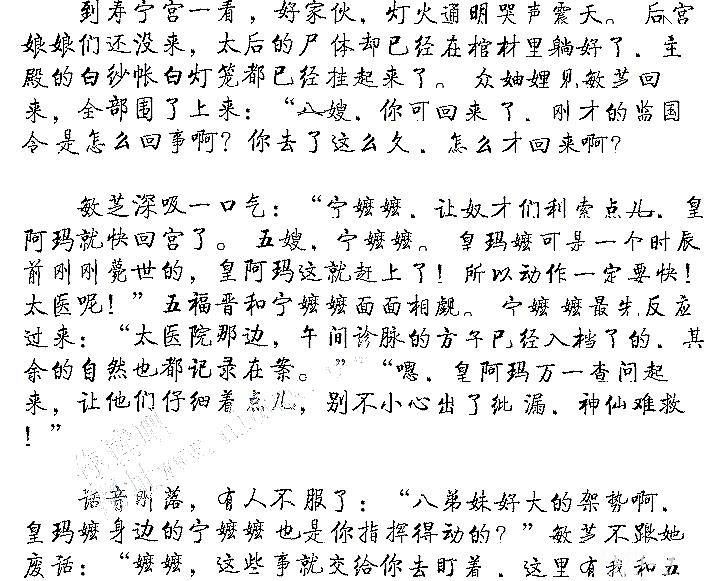 到寿宁宫一看，好家伙，灯火通明哭声震天。后宫
娘娘们还没来，太后的尸体却已经在棺材里躺好了，主
殿的白纱帐白灯笼都已经挂起来了。众妯娌见敏芝回
来，全部围了上来：“八嫂，你可回来了，刚才的监国
令是怎么回事啊？你去了这么久，怎么才回来啊？
敏芝深吸一口气：“宁嬷嬷，让奴才们利索点儿，皇
阿玛就快回宫了。五嫂，宁嬷嬷。皇玛嬷可是一个时辰
前刚刚薨世的，皇阿玛这就赶上了！所以动作一定要快！
太医呢！”五福晋和宁嬷嬷面面相觑。宁嬷嬷最先反应
过来：“太医院那边，午间诊脉的方子已经入档了的，其
余的自然也都记录在案。”“嗯，皇阿玛万一查问起
来，让他们仔细着点儿，别不小心出了纰漏，神仙难救
！”
话音刚落，有人不服了：“八弟妹好大的架势啊，
皇玛嬷身边的宁嬷嬷也是你指挥得动的？”敏芝不跟她
废话：“嬷嬷，这些事就交给你去盯着，这里有我和五